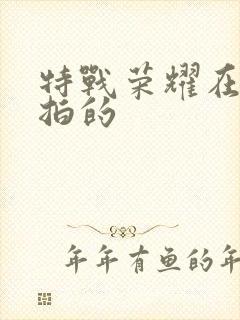 特戰荣耀在
拍的
年年有鱼的年